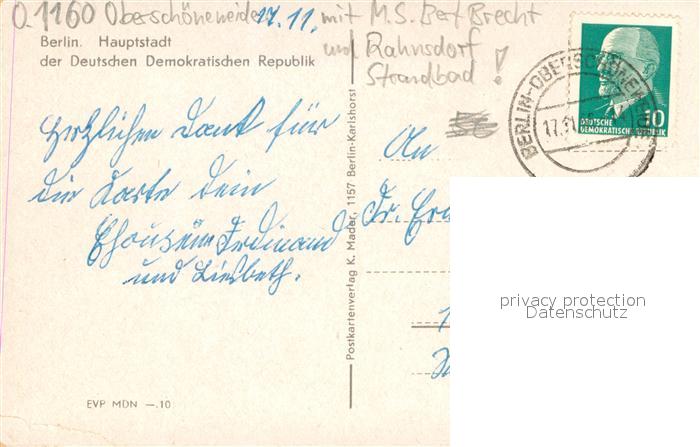 O. 1160 Oberschöneweide 17.11. mit M.S. Bert Brecht
und Rahnsdorf
Strandbad!
Berlin. Hauptstadt
der Deutschen Demokratischen Republik
Herzlichen Dank für
die Karte dein
Ferdinand
und Liesbeth.
Postkartenverlag K. Mader, 1157 Berlin-Karlshorst
EVP MDN —.10
BERLIN-OBERSCHÖNEWEIDE
17.11
10
DEUTSCHE
DEMOKRATISCHE REPUBLIK
An
Fr.
privacy protection
Datenschutz